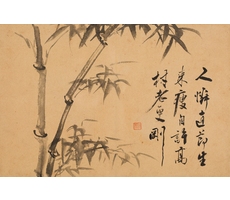 人憐直節生
來瘦自許高
材老更剛